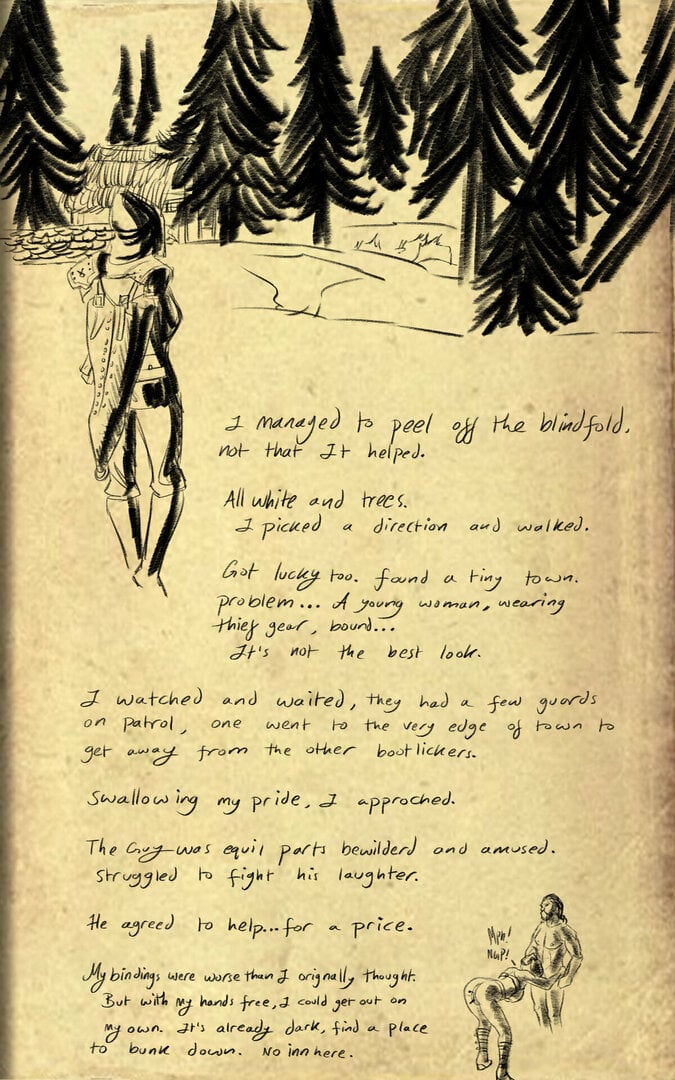 I managed to peel off the blindfold,
not that It helped.
All white and trees.
I picked a direction and walked.
Got lucky too. found a tiny town.
problem... A young woman, wearing
thief gear, bound...
It's not the best look.
I watched and waited, they had a few guards
on patrol, one went to the very edge of town to
get away from the other bootlickers.
Swallowing my pride, I approched.
The Guy was equil parts bewilderd and amused.
Struggled to fight his laughter.
He agreed to help...for a price.
Mph!
My bindings were worse than I orignally thought.
But with my hands free, I could get out on
my own. It's already dark, find a place
to bunk down. No inn here.